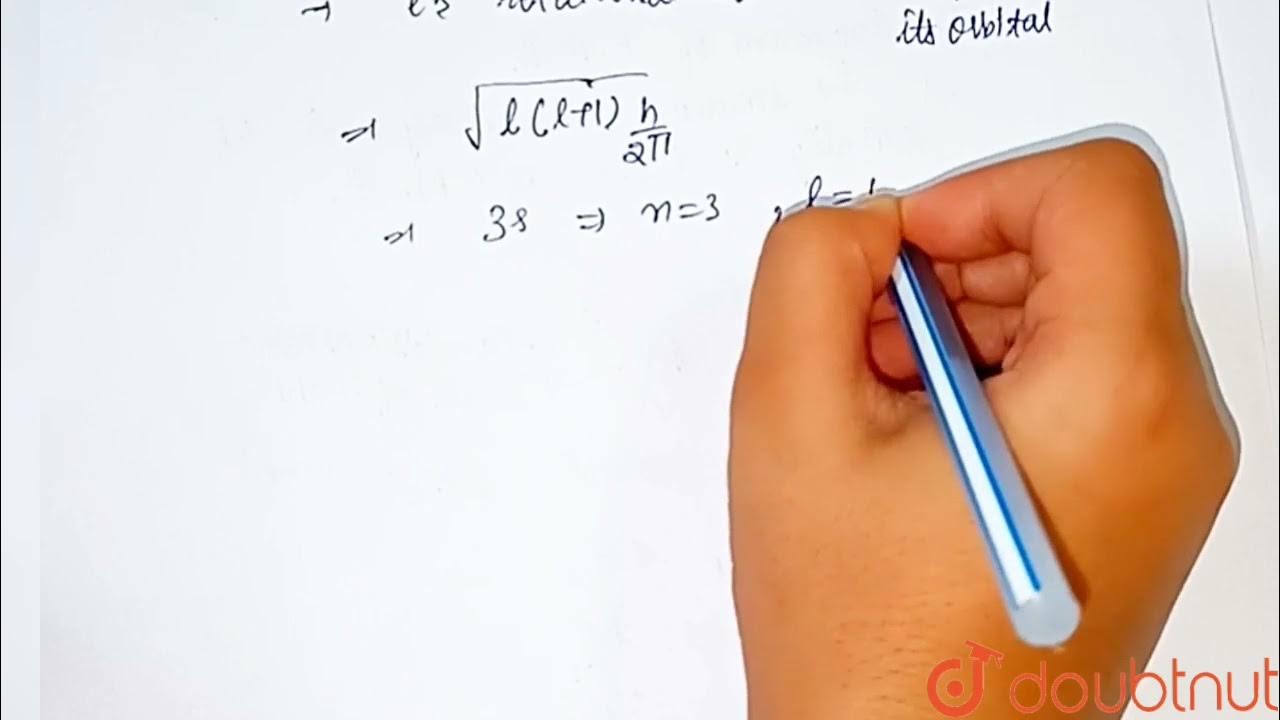 its orbital
⇒ √l(l+1) h/2π
⇒ 3s ⇒ n=3 , l=
doubtnut